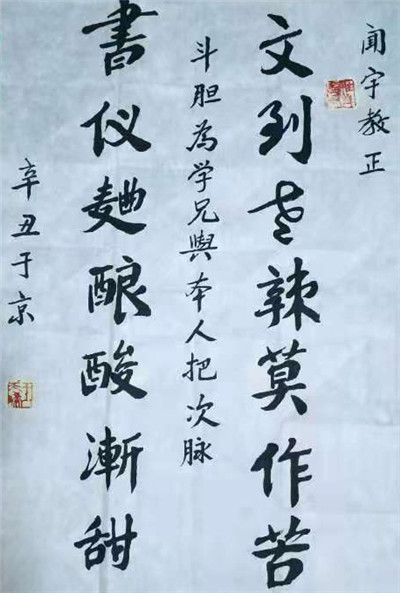 聞宇教正
文到老辣莫作苦
斗胆為学兄與本人把次脉
書仪麯酿酸漸甜
辛丑于京